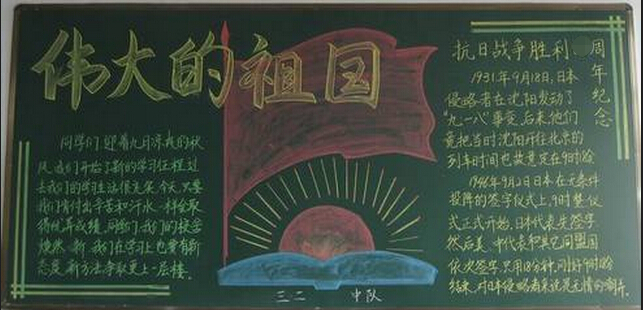 伟大的祖国
同学们,迎着九月凉爽的秋
风,我们开始了新的学习征程,过
去我们的学习生活很充实,今天,只要
我们肯付出辛苦和汗水一样会取
得优异成绩,同学们,我们的校舍
焕然一新,我们在学习上也要有新
态度,新方法争取更上一层楼。
三.二 中队
抗日战争胜利 周年纪念
1931年9月18日,日本
侵略者在沈阳发动了
“九一八”事变,后来他们
竟把当时沈阳开往北京的
列车时间也故意定在9时18分
1945年9月2日日本在无条件
投降的签字仪式上,9时整仪
式正式开始,日本代表先签字
然后美、中代表和其它同盟国
依次签字,只用18分钟,同好9时18分
结束,对日本侵略者来说是无情的讽刺。